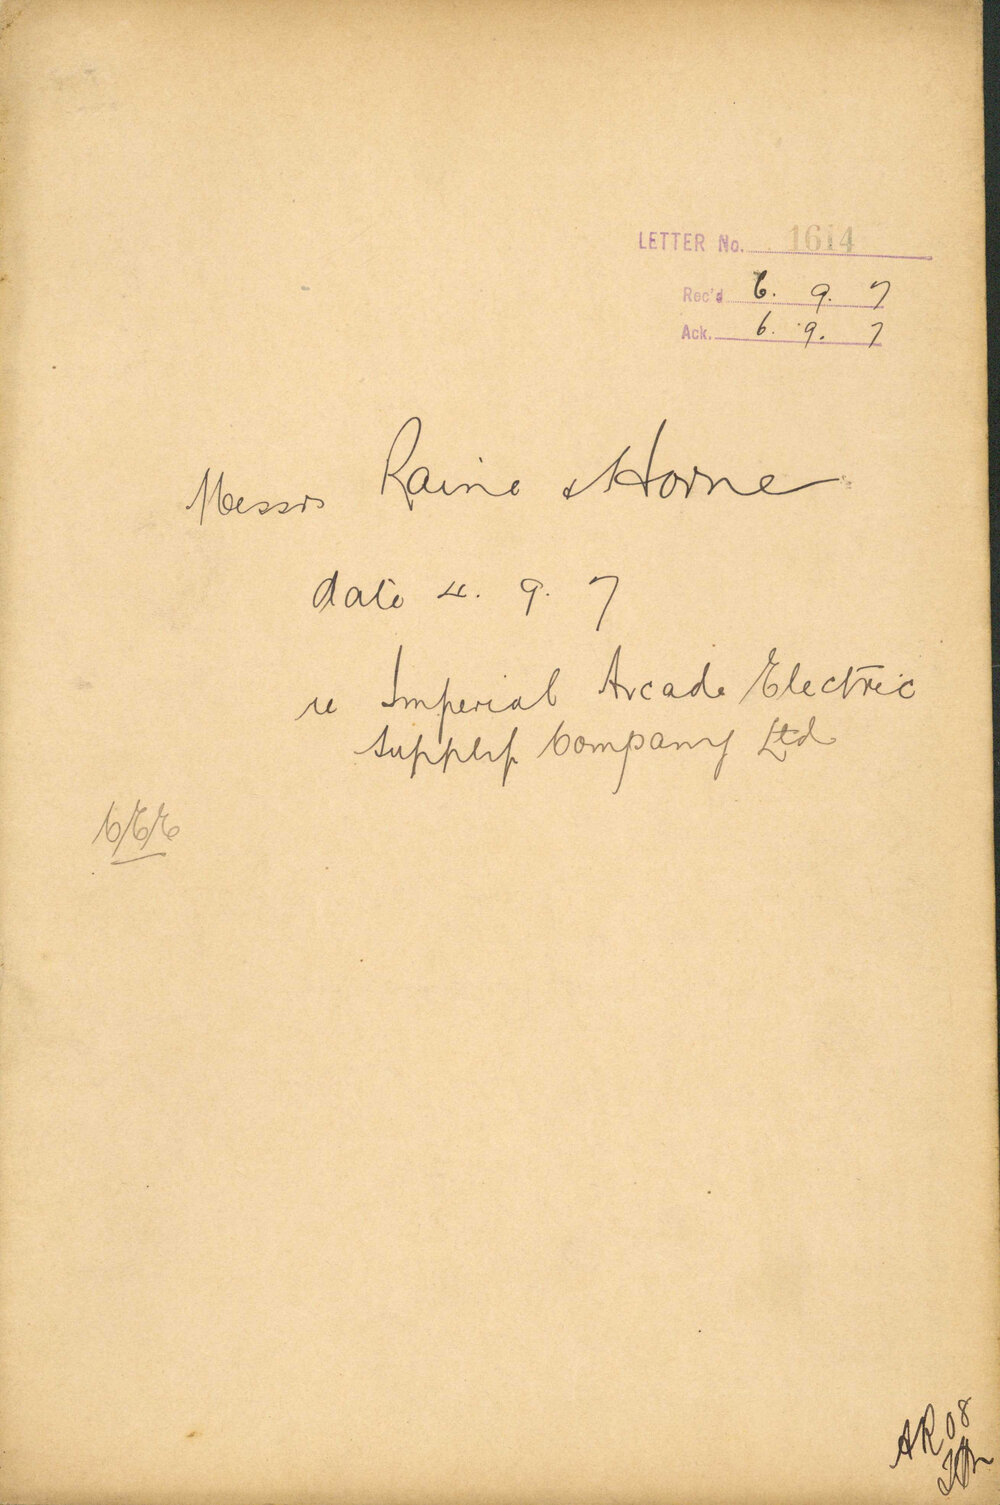 LETTER No. 1614
Rec'd 6. 9. 7
Ack. 6. 9. 7
Messrs Raine & Horne
date 4. 9. 7
re Imperial Arcade Electric
Supply Company Ltd
CEE
AR 08